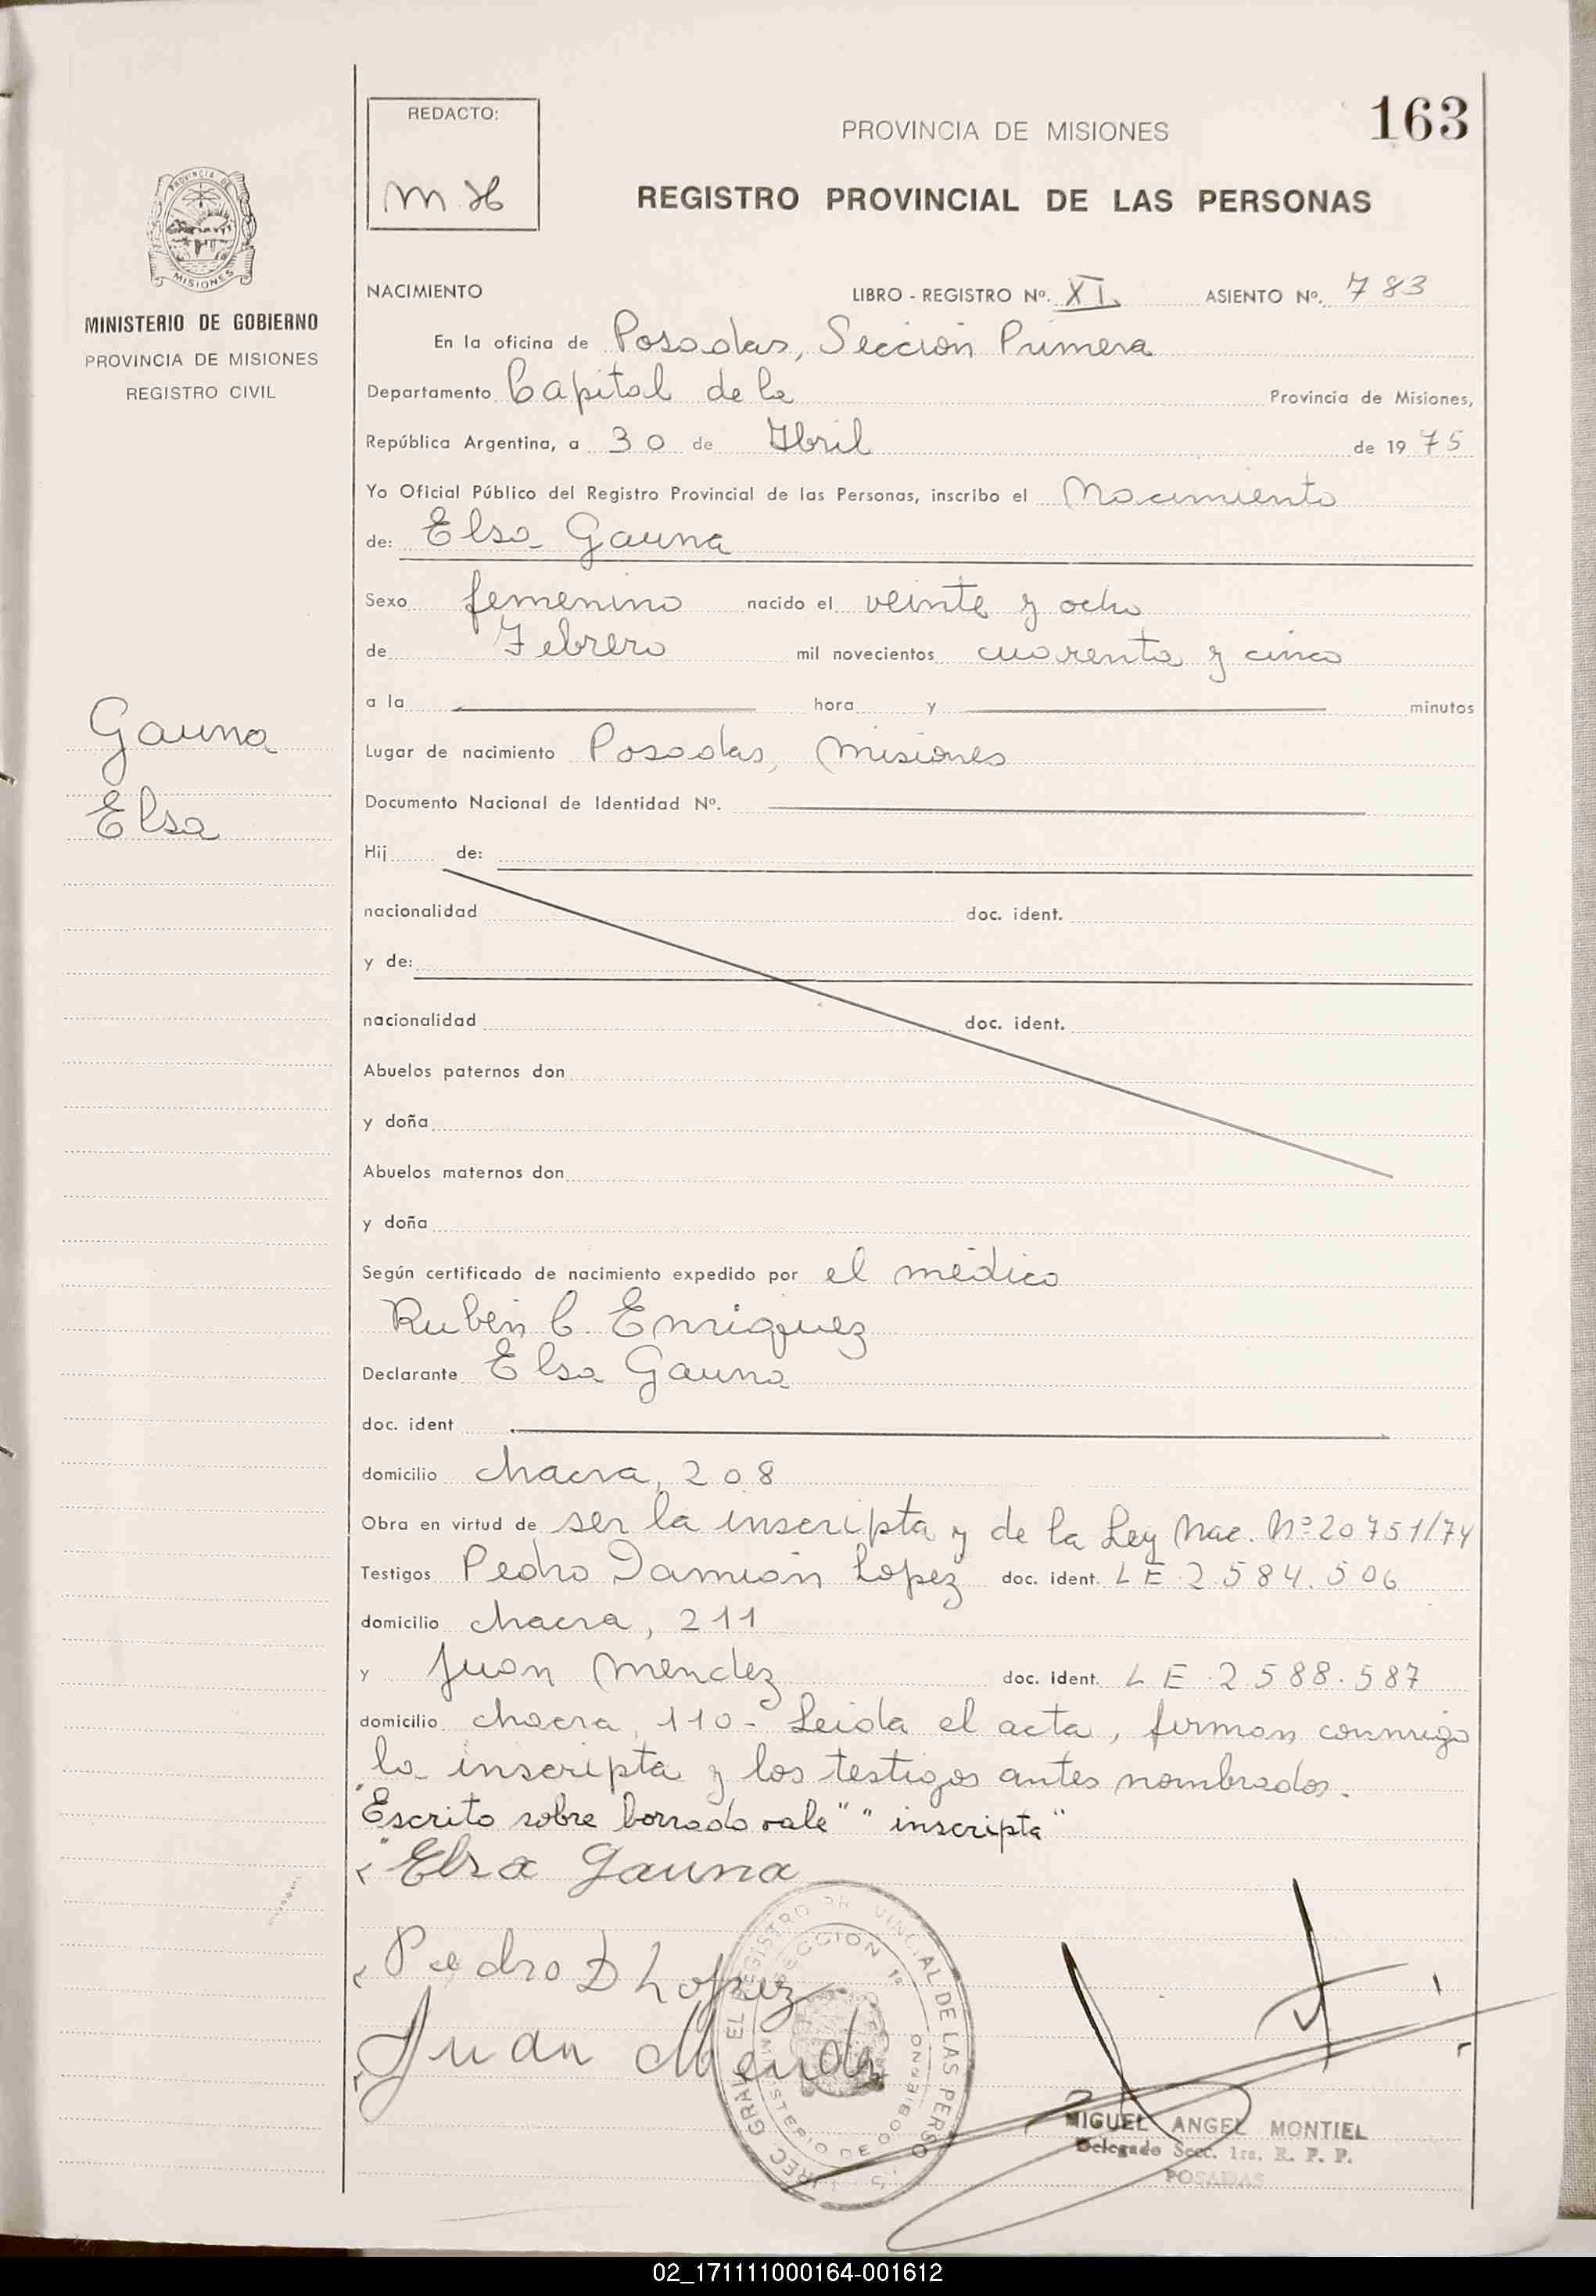 REDACTO:
M H
PROVINCIA DE MISIONES
163
REGISTRO PROVINCIAL DE LAS PERSONAS
PROVINCIA DE
MISIONES
MINISTERIO DE GOBIERNO
PROVINCIA DE MISIONES
REGISTRO CIVIL
NACIMIENTO LIBRO - REGISTRO Nº. XI ASIENTO Nº. 783
En la oficina de Posadas, Sección Primera
Departamento Capital de la Provincia de Misiones,
República Argentina, a 30 de Abril de 1975
Yo Oficial Público del Registro Provincial de las Personas, inscribo el Nacimiento
de: Elsa Gauna
Sexo femenino nacido el veinte y ocho
de Febrero mil novecientos cuarenta y cinco
a la hora y minutos
Gauna
Elsa
Lugar de nacimiento Posadas, Misiones
Documento Nacional de Identidad Nº.
Hij de:
nacionalidad doc. ident.
y de:
nacionalidad doc. ident.
Abuelos paternos don
y doña
Abuelos maternos don
y doña
Según certificado de nacimiento expedido por el médico
Rubén C. Enriquez
Declarante Elsa Gauna
doc. ident
domicilio chacra, 208
Obra en virtud de ser la inscripta y de la Ley Nac. Nº 20751/74
Testigos Pedro Damián Lopez doc. ident. L E 2.584.506
domicilio chacra, 211
y Juan Mendez doc. ident. L E 2588.587
domicilio chacra, 110- Leida el acta, firman conmigo
la inscripta y los testigos antes nombrados.
"Escrito sobre borrado vale" "inscripta"
Elsa Gauna
Pedro D Lopez
Juan Mende
SECCION 1ª
MINISTERIO DE GOBIERNO
MIGUEL ANGEL MONTIEL
Delegado Secc. 1ra. R. P. P.
POSADAS
02_171111000164-001612